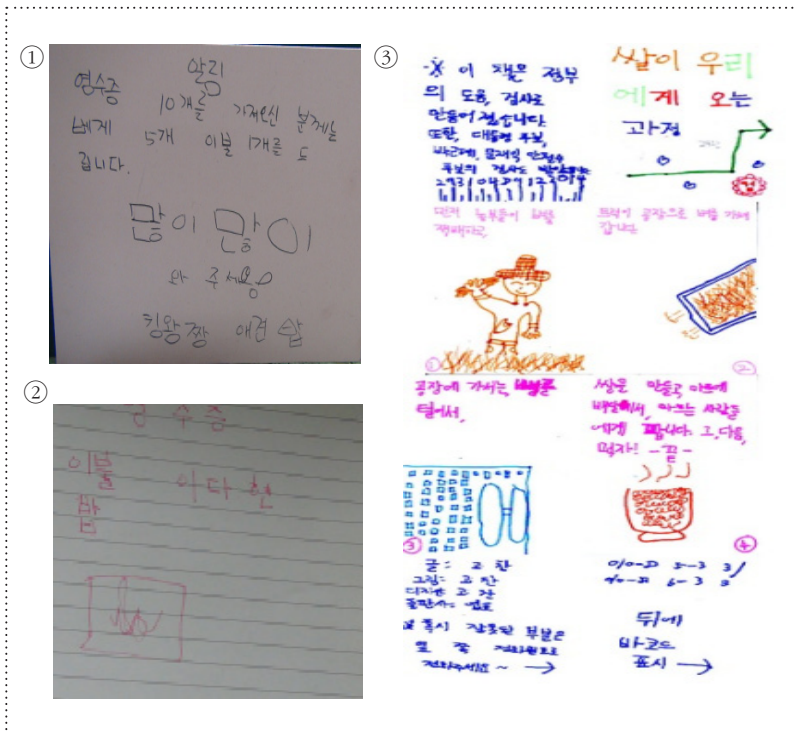 ①
알림
영수증 10개를 가져오신 분께는
베게 5개 이불 1개를 드
립니다.
많이 많이
와 주세용
킹왕짱 애견 샵
②
영수증
이불 이다현
밥
③
※ 이 책은 정부
의 도움, 검사로
만들어 졌습니다.
또한, 대통령 후보,
박근혜, 문재인, 안철수
후보의 검사도
쌀이 우리
에게 오는
과정
먼저 농부들이 벼를
재배하고,
①
트럭이 공장으로 벼를 가져
갑니다.
②
공장에 가서는
털어서,
③
쌀을 만들고, 마트에
배달해서, 마트는 사람들
에게 팝니다. 그 다음,
먹자! -끝-
④
글: 고 찬
그림: 고 찬
디자인: 고 찬
출판사:
※ 혹시 잘못된 부분은
전화주세요 ~ →
뒤에
바코드
표시 →